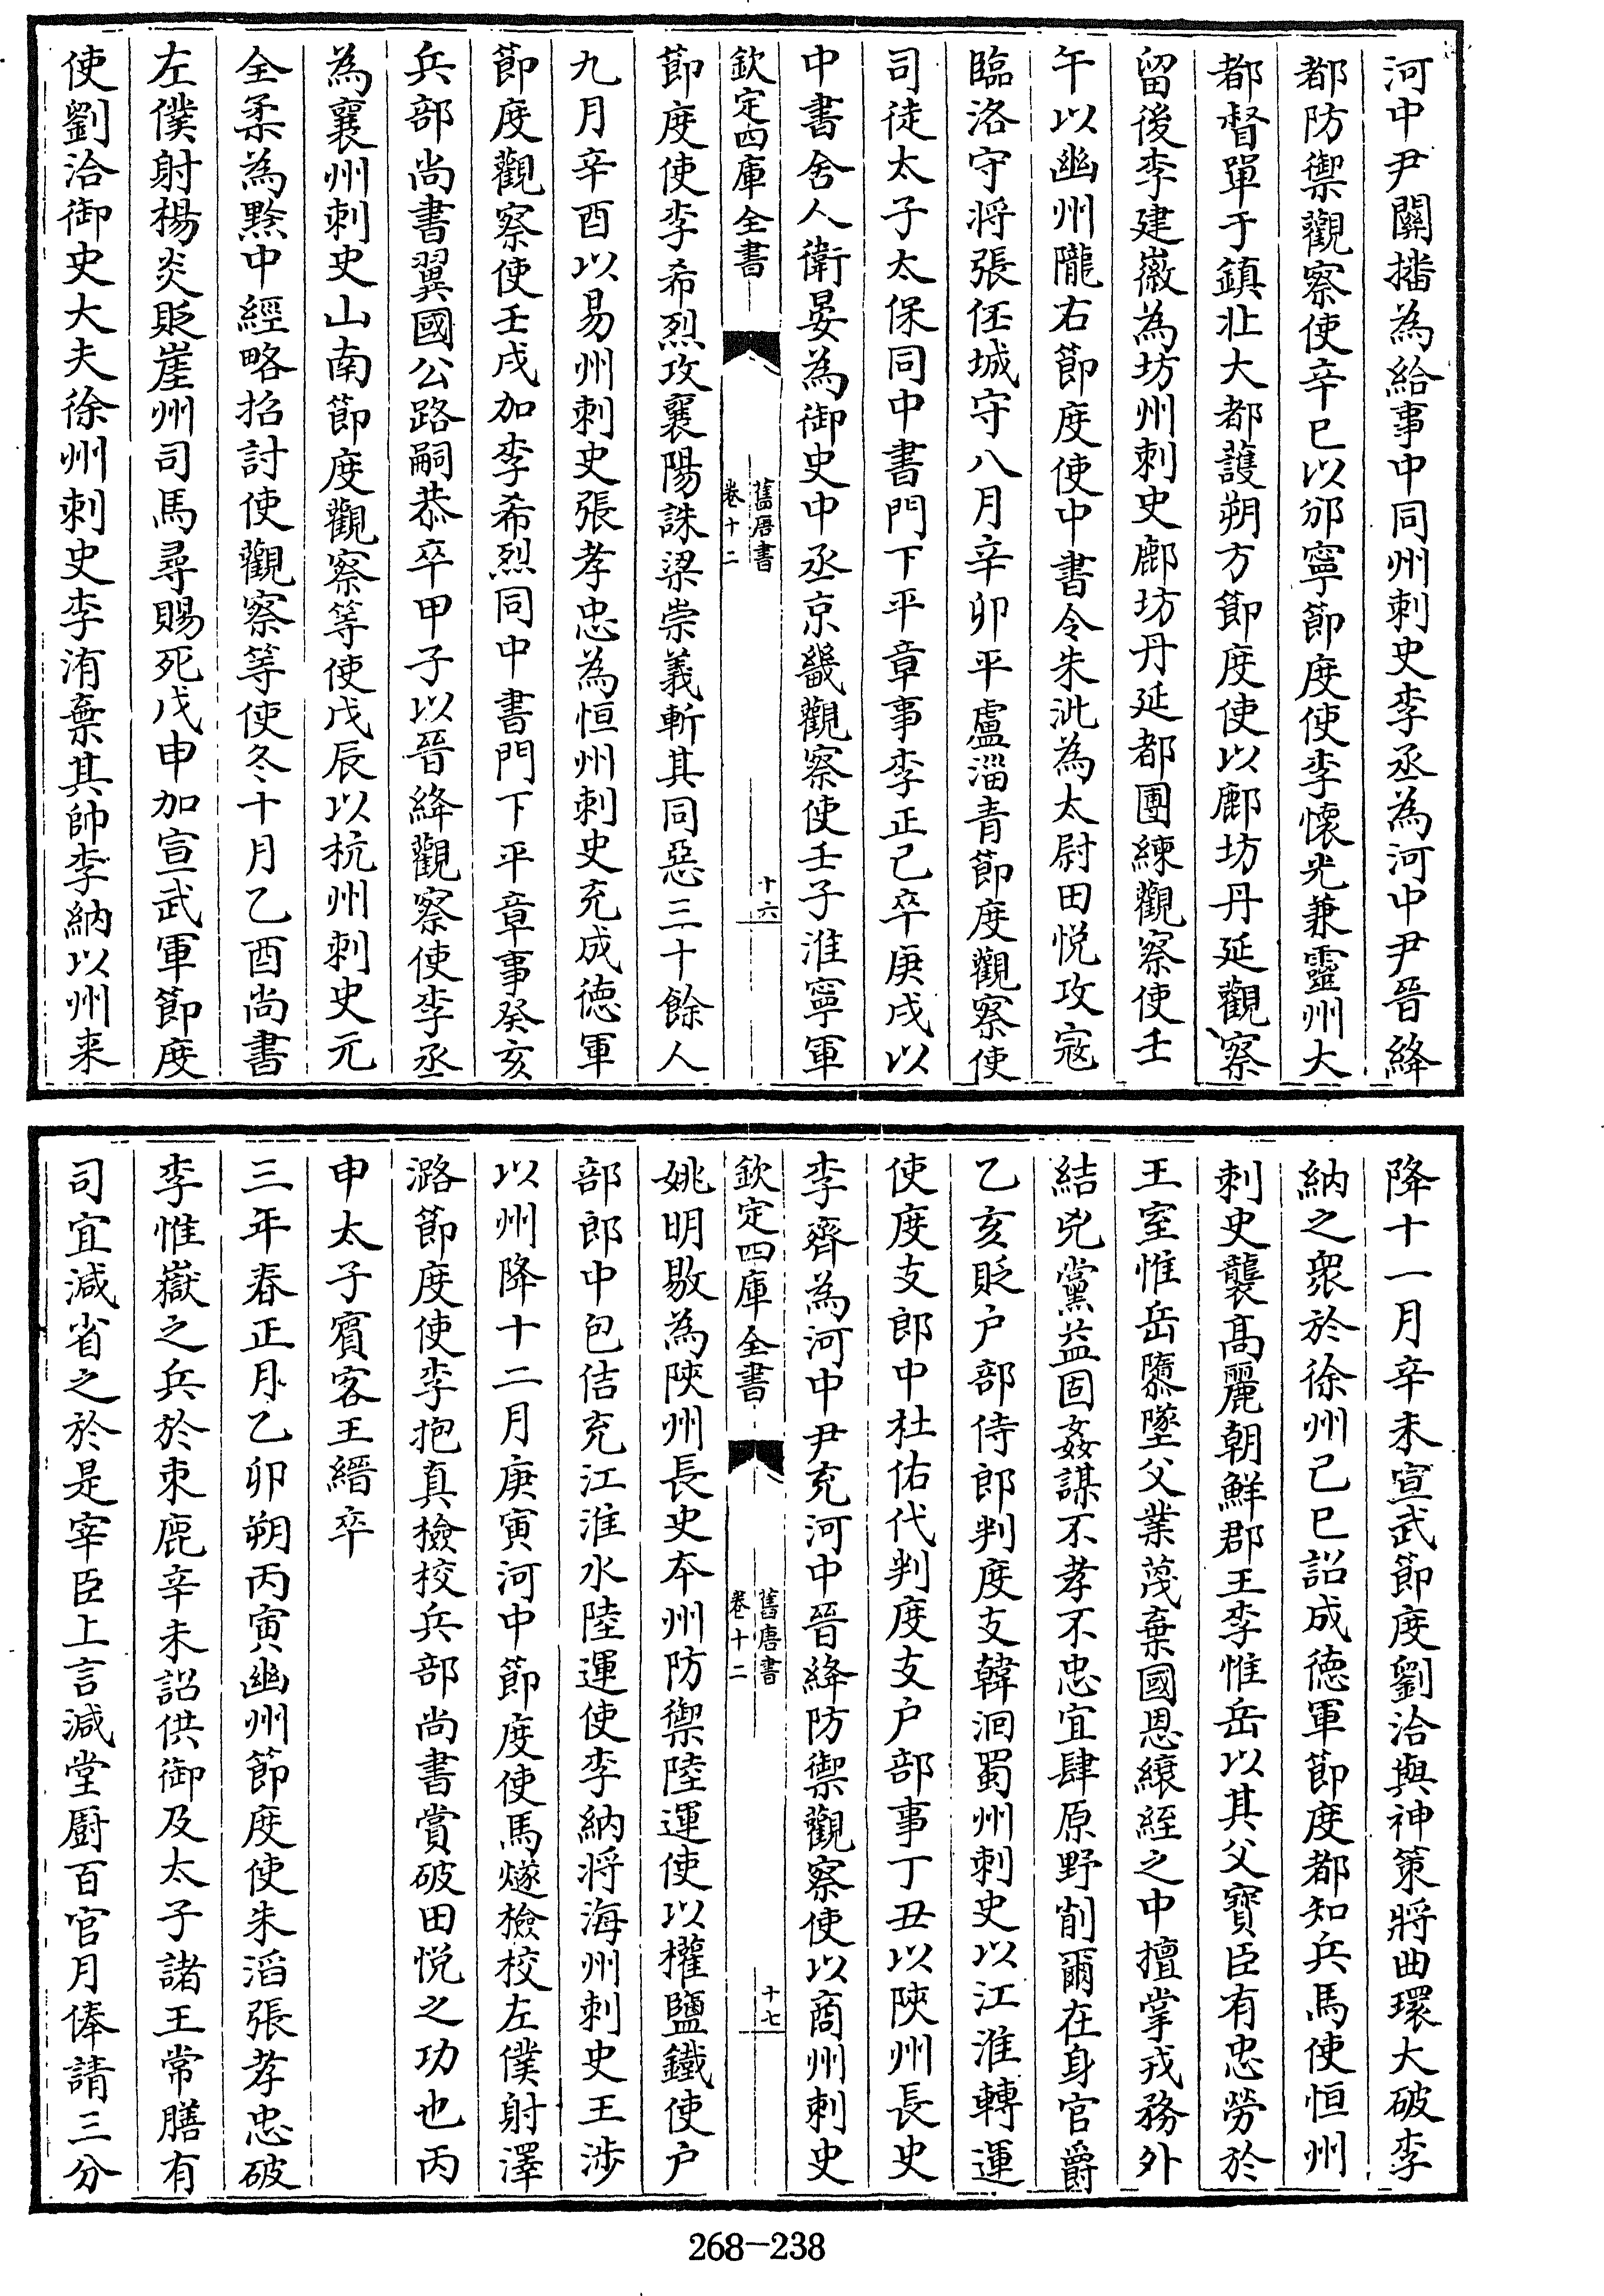 河中尹關播為給事中同州刺史李丞為河中尹晉絳
都防禦觀察使辛巳以邠寧節度使李懷光兼靈州大
都督單于鎮北大都護朔方節度使以鄜坊丹延觀察
留後李建徽為坊州刺史鄜坊丹延都團練觀察使壬
午以幽州隴右節度使中書令朱泚為太尉田悅攻寇
臨洺守將張伾城守八月辛卯平盧淄青節度觀察使
司徒太子太保同中書門下平章事李正己卒庚戌以
中書舍人衛晏為御史中丞京畿觀察使壬子淮寧軍
欽定四庫全書
舊唐書
卷十二
十六
節度使李希烈攻襄陽誅梁崇義斬其同惡三十餘人
九月辛酉以易州刺史張孝忠為恒州刺史充成德軍
節度觀察使壬戌加李希烈同中書門下平章事癸亥
兵部尚書翼國公路嗣恭卒甲子以晉絳觀察使李丞
為襄州刺史山南節度觀察等使戊辰以杭州刺史元
全柔為黔中經略招討使觀察等使冬十月乙酉尚書
左僕射楊炎貶崖州司馬尋賜死戊申加宣武軍節度
使劉洽御史大夫徐州刺史李洧棄其帥李納以州来
降十一月辛未宣武節度劉洽與神策將曲環大破李
納之衆於徐州己巳詔成德軍節度都知兵馬使恒州
刺史襲髙麗朝鮮郡王李惟岳以其父寶臣有忠勞於
王室惟岳隳墜父業蔑棄國恩縗絰之中擅掌戎務外
結兇黨益固姦謀不孝不忠宜肆原野削爾在身官爵
乙亥貶户部侍郎判度支韓洄蜀州刺史以江淮轉運
使度支郎中杜佑代判度支户部事丁丑以陝州長史
李齊為河中尹充河中晉絳防禦觀察使以商州刺史
欽定四庫全書
舊唐書
卷十二
十七
姚明敭為陝州長史本州防禦陸運使以權鹽鐵使户
部郎中包佶充江淮水陸運使李納将海州刺史王涉
以州降十二月庚寅河中節度使馬燧檢校左僕射澤
潞節度使李抱真檢校兵部尚書賞破田悅之功也丙
申太子賓客王縉卒
三年春正月乙卯朔丙寅幽州節度使朱滔張孝忠破
李惟嶽之兵於束鹿辛未詔供御及太子諸王常膳有
司宜減省之於是宰臣上言減堂厨百官月俸請三分
268-238